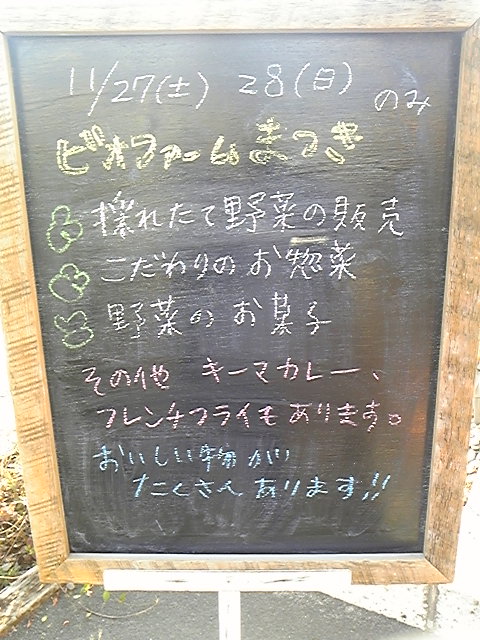 11/27(土) 28(日) のみ
ビオファームまつき
採れたて野菜の販売
こだわりのお惣菜
野菜のお菓子
その他 キーマカレー、
フレンチフライもあります。
おいしい物が
たくさんあります!!